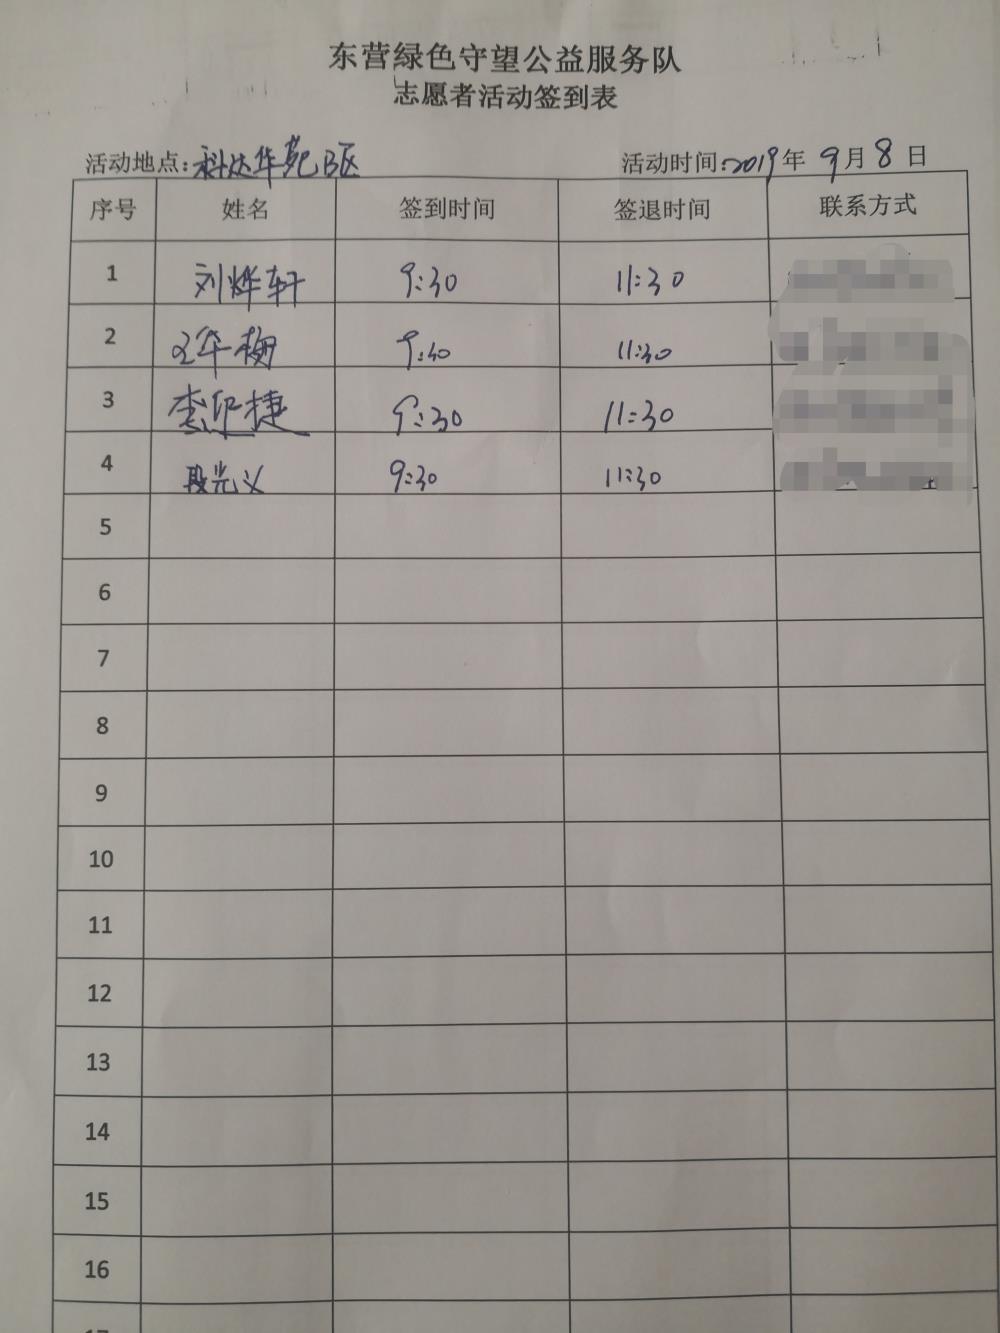 东营绿色守望公益服务队
志愿者活动签到表
活动地点:科达华苑B区 活动时间:2019年9月8日
序号 姓名 签到时间 签退时间 联系方式
1 刘烨轩 9:30 11:30
2 华梅 9:30 11:30
3 李印捷 9:30 11:30
4 段光义 9:30 11:30
5
6
7
8
9
10
11
12
13
14
15
16
17